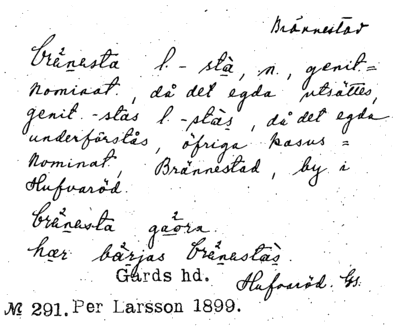 Brännestad
brånesta l. -stà, n., genit. =
nominat., då det egda utsättes,
genit. -stås l. -stàs, då det egda
underförstås, öfriga kasus =
nominat., Brännestad, by i
Hufvaröd.
brånesta gåorn
hær bårjas brånestàs.
Gärds hd.
Hufvaröd. Gs.
№ 291. Per Larsson 1899.